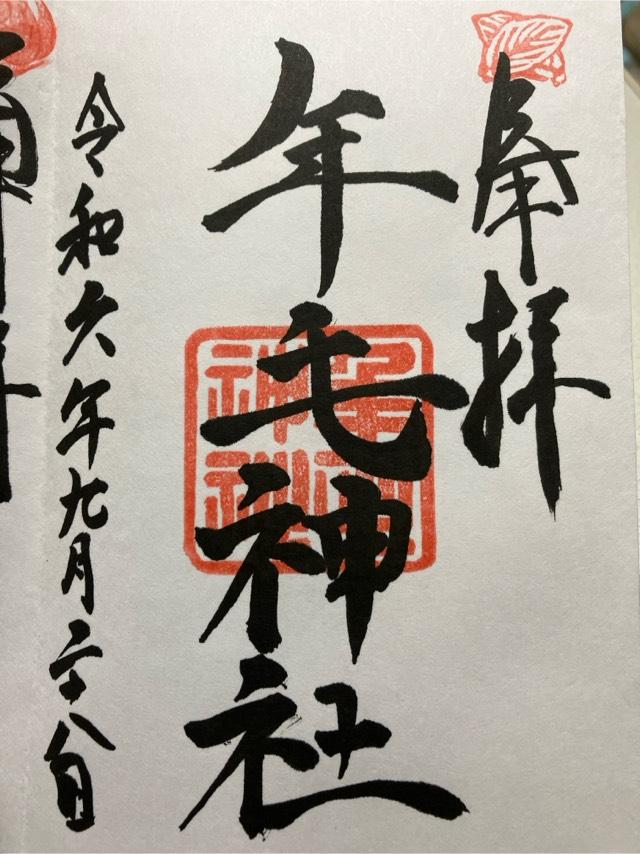 奉拝
年毛神社
令和六年九月二十八日